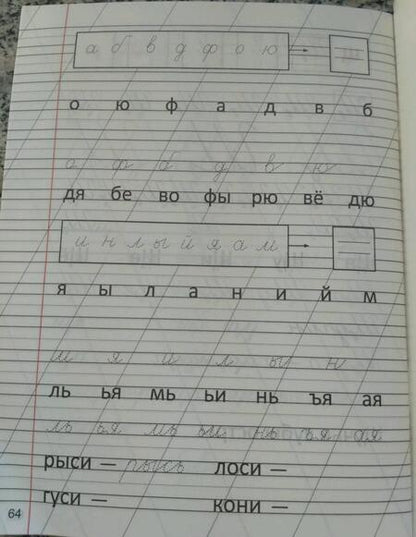 а б в д ф о ю
о ю ф а д в б
а ф б д в ю
дя бе во фы рю вё дю
и н л ы й я а м
я ы л а н и й м
м я и л ы н
ль ья мь ьи нь ъя ая
ль ья мь ьи нь ъя ая
рыси — рысь лоси —
гуси — кони —
64